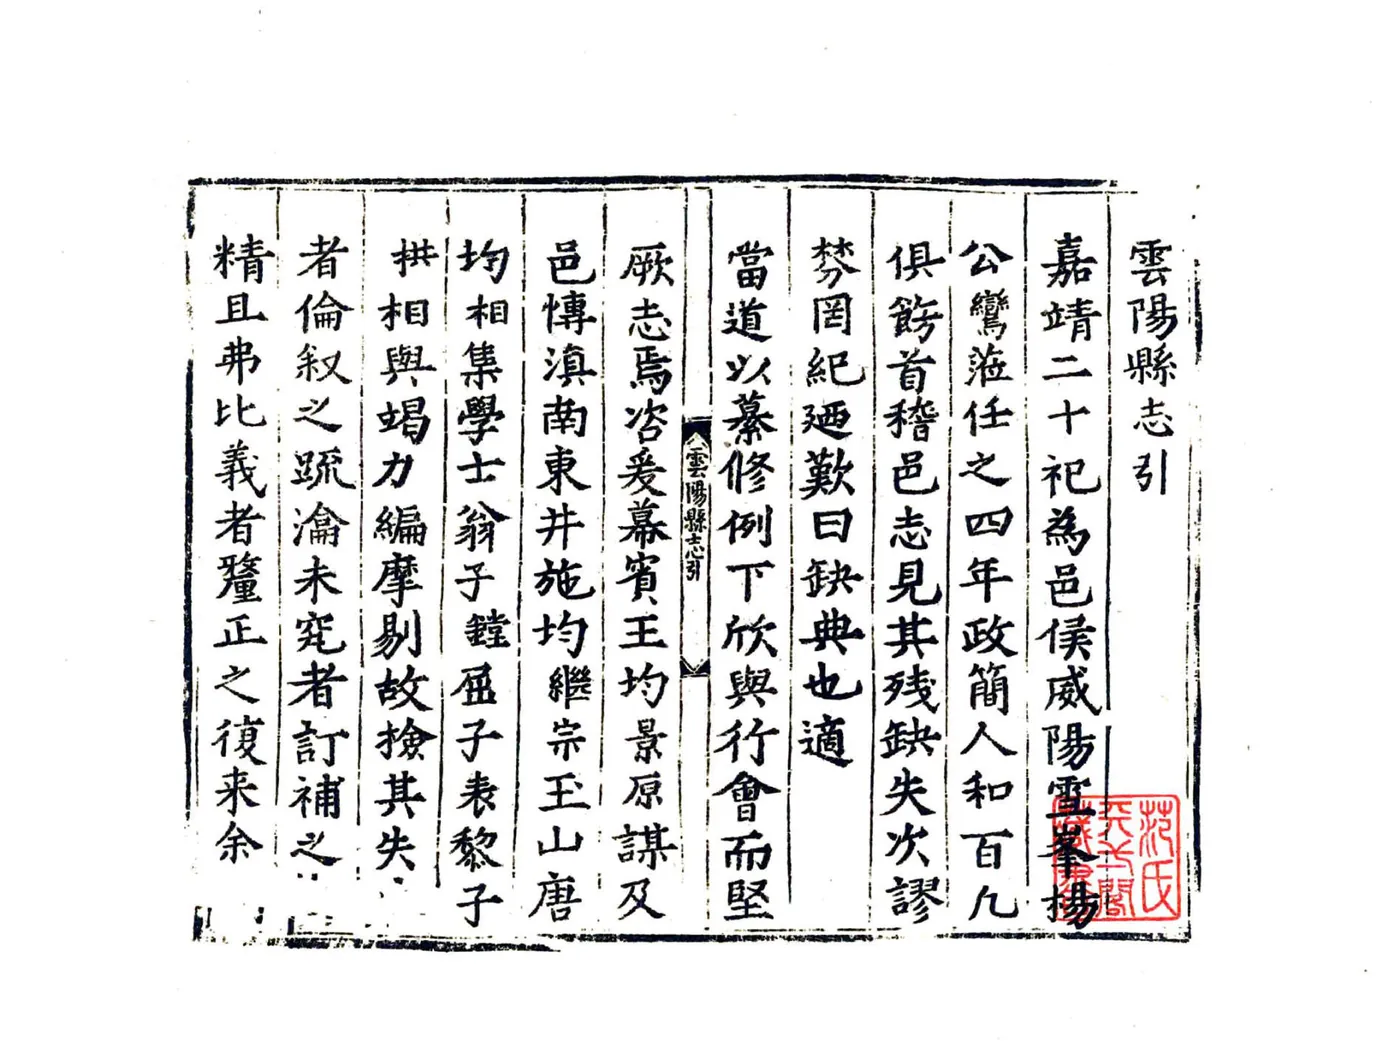 雲陽縣志引
嘉靖二十祀為邑侯威陽雪峯楊
公鸞蒞任之四年政簡人和百凡
俱飭首稽邑志見其残缺失次謬
棼罔紀廼歎曰缺典也適
當道以纂修例下欣與行會而堅
雲陽縣志引
厥志焉咨爰幕賓王均景原謀及
邑慱滇南東井施均繼宗玉山唐
均相集學士翁子鏜屈子表黎子
拱相與竭力編摩剔故撿其失
者倫叙之疏瀹未究者訂補之
精且弗比義者釐正之復来余
范氏天一閣藏書